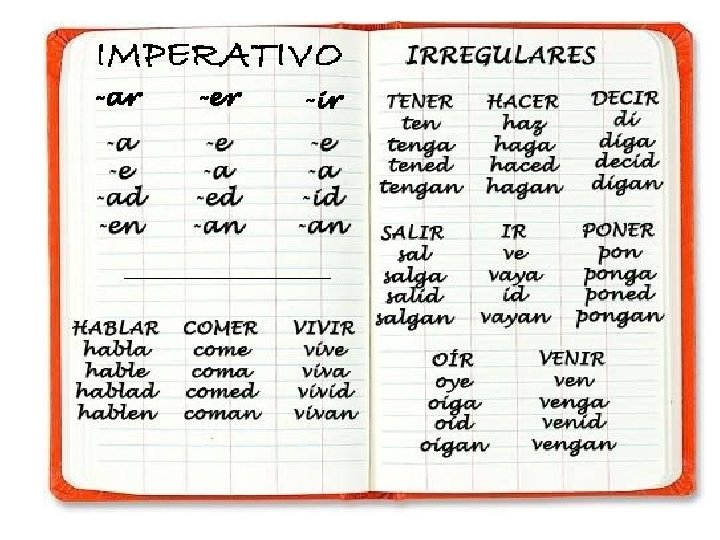 IMPERATIVO
-ar -er -ir
-a -e -e
-e -a -a
-ad -ed -id
-en -an -an
HABLAR COMER VIVIR
habla come vive
hable coma viva
hablad comed vivid
hablen coman vivan
IRREGULARES
TENER HACER DECIR
ten haz di
tenga haga diga
tened haced decid
tengan hagan digan
SALIR IR PONER
sal ve pon
salga vaya ponga
salid id poned
salgan vayan pongan
OÍR VENIR
oye ven
oiga venga
oíd venid
oigan vengan